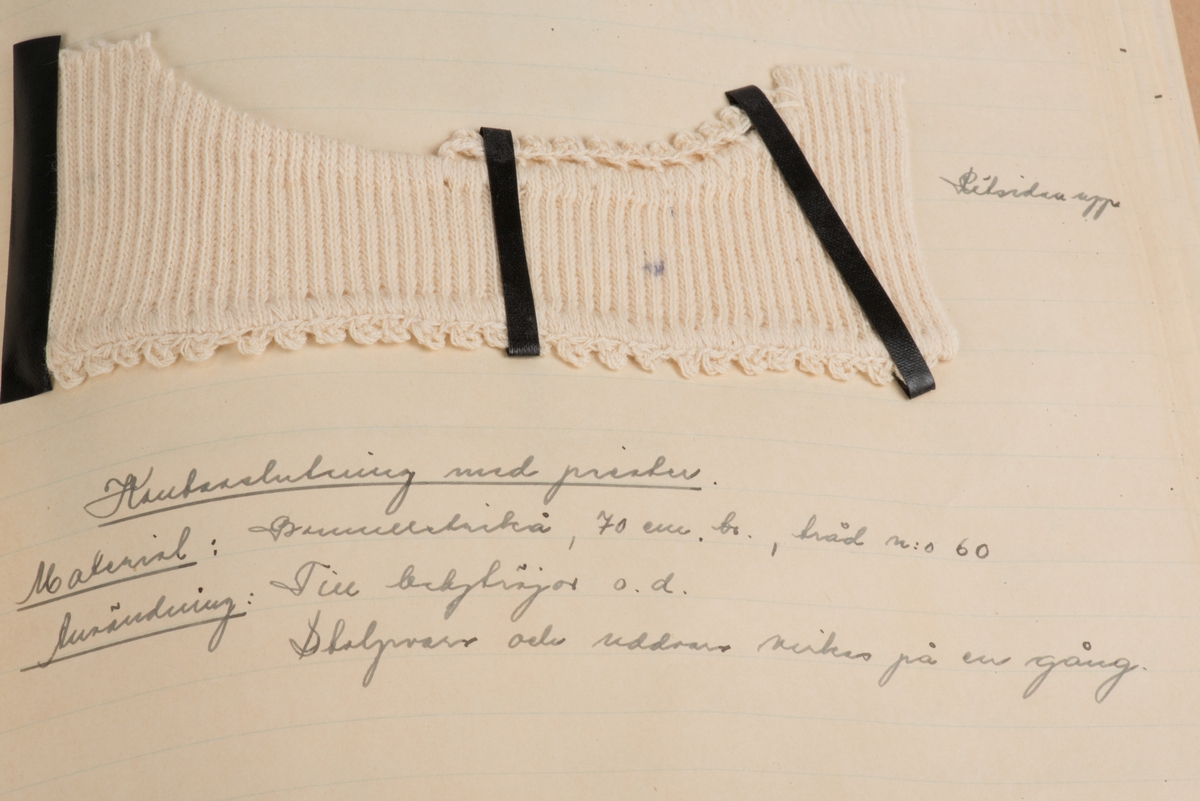 Rätsidan upp
Kantavslutning med picoter.
Material: Bomullstrikå, 70 cm. br., tråd n:o 60
Användning: Till babytröjor o.d.
Stolparna och uddarna virkas på en gång.